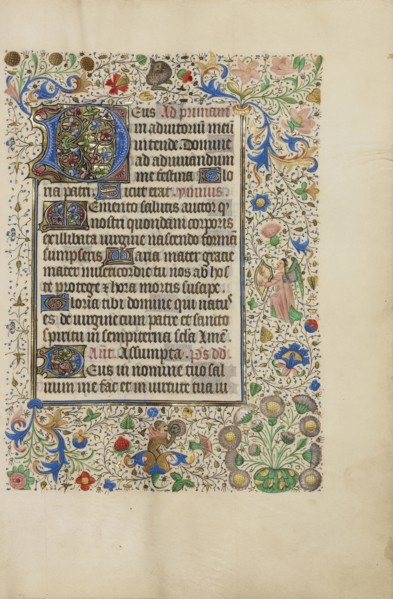 Deus Ad primam
in adiutoriũ meũ
intende. Domine
ad adiuuandum
me festina. Glo
ria patri. Sicut erat. ypnus.
Memento salutis auctor q
nostri quondam corporis
ex illibata uirgine nascendo formã
sumpseris. Maria mater gracie
mater misericordie tu nos ab hos
te protege ⁊ hora mortis suscipe.
Gloria tibi domine qui natus
es de uirgine cum patre et sancto
spiritu in sempiterna secula Amẽ.
Ant. Assumpta. Ps dd
Deus in nomine tuo sal
uum me fac et in uirtute tua iu